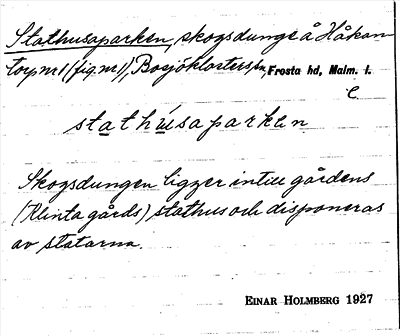 Stathusaparken, skogsdunge å Håkan-
torp nr 1 (fig. nr 1), Bosjöklosters sn, Frosta hd, Malm. l.
e
stathusaparken
Skogsdungen ligger intill gårdens
(Klinta gårds) stathus och disponeras
av statarna.
EINAR HOLMBERG 1927